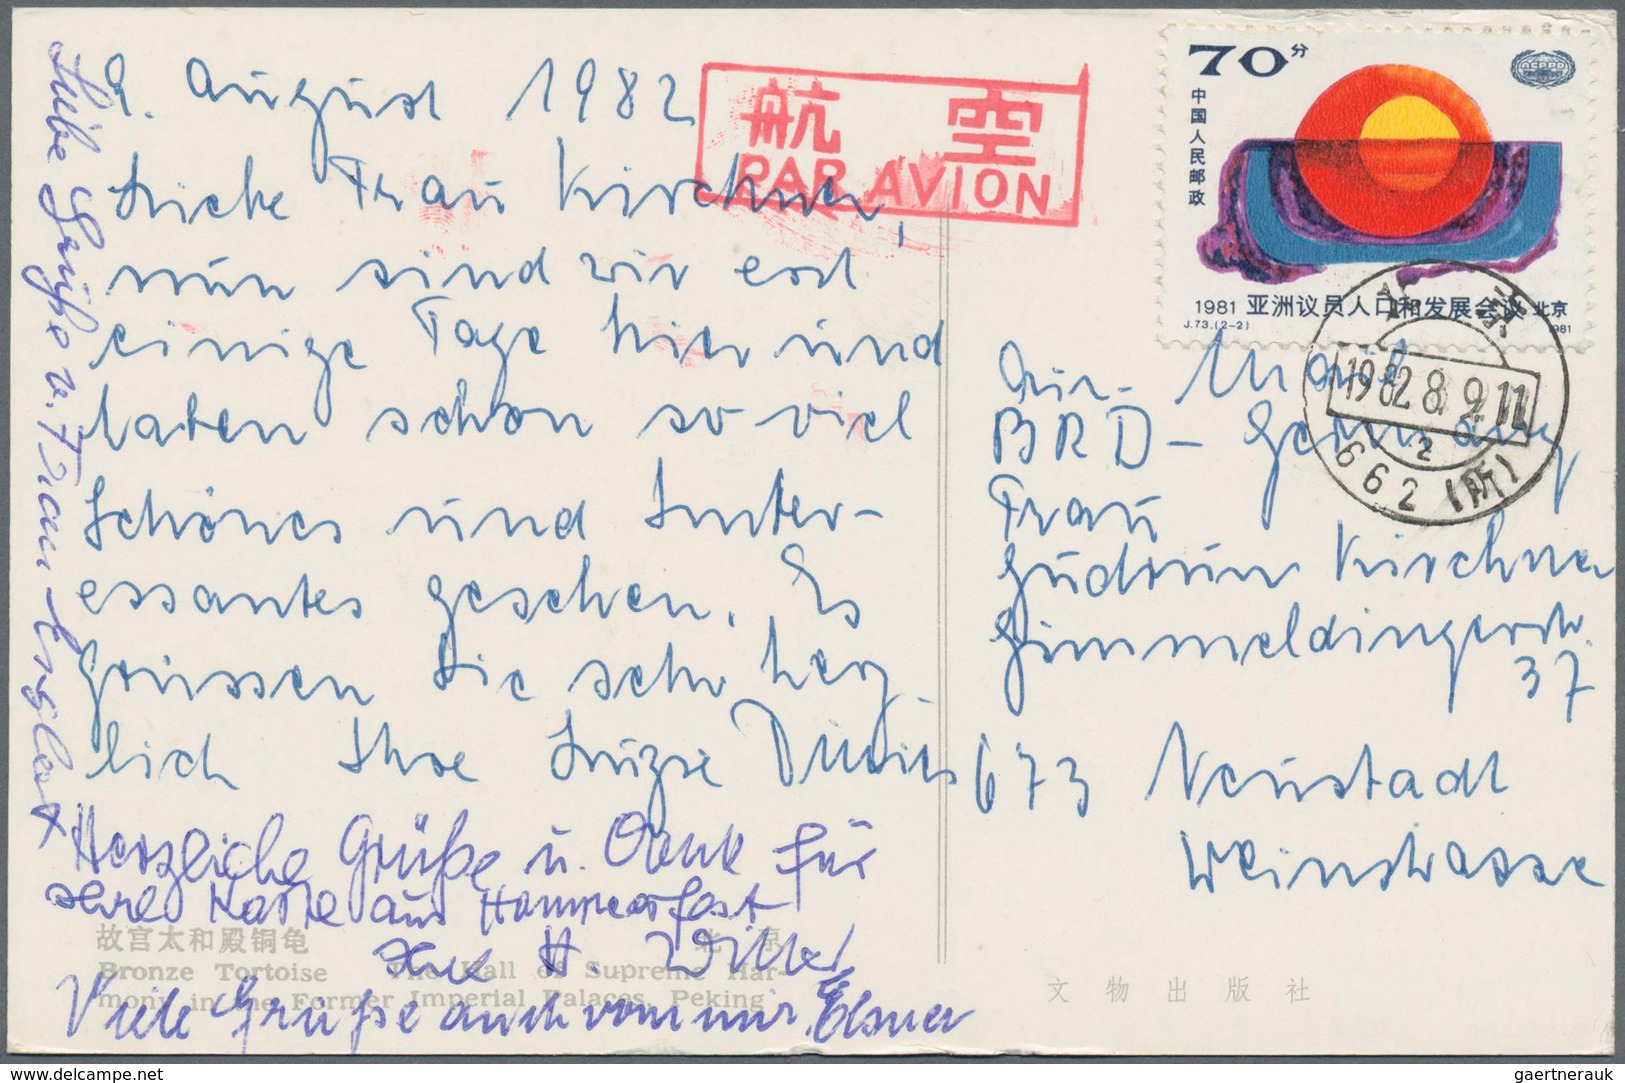 9. August 1982
Liebe Frau Kirchner,
nun sind wir erst
einige Tage hier und
haben schon so viel
Schönes und Inter-
essantes gesehen. Es
grüssen Sie sehr herz-
lich Ihre Luise
Herzliche Grüße u. Dank für
Ihre Karte aus Hammerfest
H.
Viele Grüße auch von mir, Elsner
Liebe Grüße v. Frau
航空
PAR AVION
70分
中国人民邮政
ACPPD
1981 亚洲议员人口和发展会议 北京
J.73.(2-2) 1981
北京
1982.8.9.11
2
662 (所)
Air-Mail
BRD-Germany
Frau
Gudrun Kirchner
Gimmeldingerstr.
37
673 Neustadt
Weinstrasse
故宫太和殿铜龟 北京
Bronze Tortoise The Hall of Supreme Har-
mony in the Former Imperial Palaces, Peking
文物出版社
delcampe.net
gaertnerauk